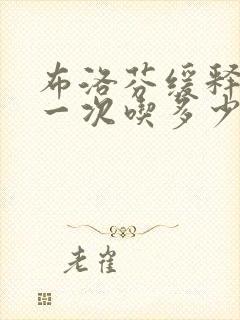 布洛芬缓释
一次喫多少
老崔